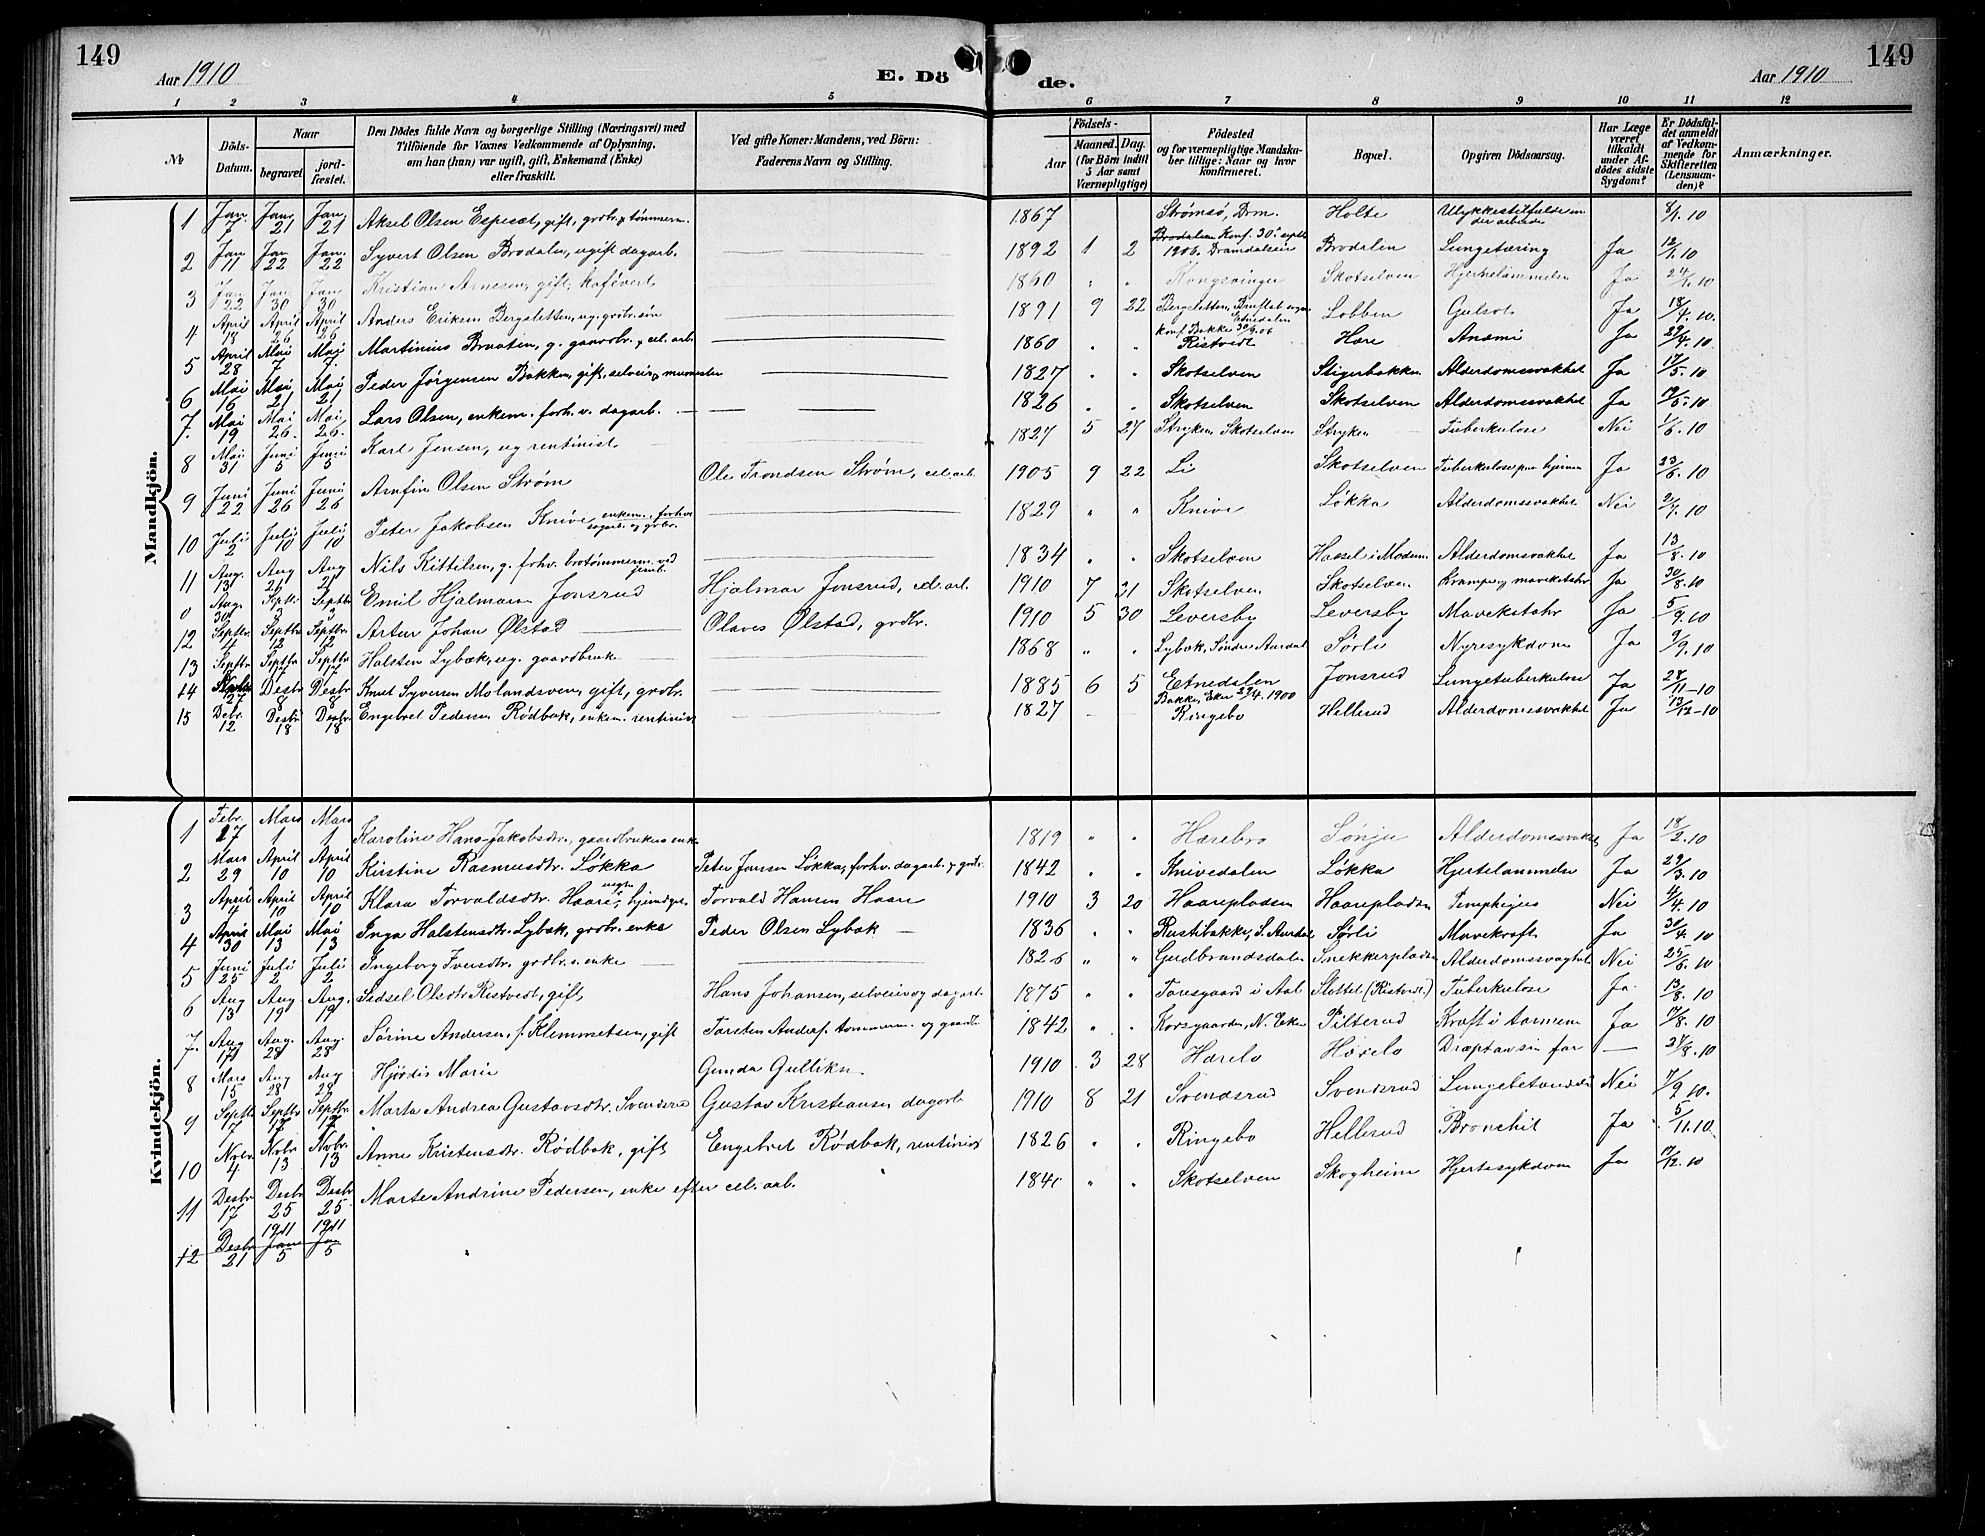 149
149
Aar 1910
E. Dö
de.
Aar 1910
1 2 3 4 5 6 7 8 9 10 11 12
No
Döds-Datum.
Naar
begravet
jordfæstet.
Den Dödes fulde Navn og borgerlige Stilling (Næringsvei) med
Tilföiende for Voxnes Vedkommende af Oplysning,
om han (hun) var ugift, gift, Enkemand (Enke)
eller fraskilt.
Ved gifte Koner: Mandens, ved Börn:
Faderens Navn og Stilling.
Födsels-
Aar
Maaned. Dag.
(for Börn indtil
5 Aar samt
Værnepligtige)
Födested
og for værnepligtige Mandskaber tillige: Naar og hvor
konfirmeret.
Bopæl.
Opgiven Dödsaarsag.
Har Læge
været
tilkaldt
under Afdödes sidste
Sygdom?
Er Dödsfaldet anmeldt
af Vedkommende for
Skifteretten
(Lensmanden)?
Anmærkninger.
Mandkjön.
1 Jan. 7 Jan. 21 Jan. 21 Aksel Olsen Espeset, gift, grdbr. & tømmerm. 1867 Strømsø, Drm. Holte Ulykkestilfælde under arbeide 8/1.10
2 Jan 11 Jan 22 Jan. 22 Syvert Olsen Brodalen, ugift dagarb. 1892 1 2 Brodalen Konf. 30. septb 1906. Bramdalseie Brodalen Lungetæring Ja 12/1.10
3 Jan 22 Jan. 30 Jan 30 Kristian Arnesen, gift, kafévert 1860 " " Kongsvinger Skotselven Hjertelammelse Ja 24/1.10
4 April 18 April 26 April 26 Anders Eriksen Bergsletten, ug. grdbr. søn 1891 9 22 Bergsletten, Bruflat sogn Etnedalen konf. Bakke 30/9.06 Lobben Gulsot Ja 18/4.10.
5 April 28 Mai 7 Mai 7 Martinius Braaten, g. gaardbr. & cel. arb. 1860 " " Ristvedt Hære Anæmi Ja 29/4.10
6 Mai 16 Mai 21 Mai 21 Peder Jørgensen Bakken, gift, selveier & murmester 1827 " " Skotselven Stigerbakken Alderdomssvakhet Ja 17/5.10
7. Mai 19 Mai 26. Mai 26. Lars Olsen, enkem. forh. v. dagarb. 1826 " " Skotselven Skotselven Alderdomssvakhet Ja 19/5.10
8 Mai 31 Juni 5 Juni 5 Karl Jensen, ug rentinist 1827 5 27 Stryken, Skotselven Stryken Tuberkulose Nei 1/6.10
9 Juni 22 Juni 26 Juni 26 Arnfin Olsen Strøm Ole Trondsen Strøm, cel. arb. 1905 9 22 Li Skotselven Tuberkulose paa hjernen Ja 23/6.10
10 Juli 2 Juli 10 Juli 10 Peter Jakobsen Knive enkem. forhv. sagarb. og grdbr. 1829 " " Knive Løkka Alderdomssvakhet Nei 2/7.10
11 Aug. 13 Aug 21 Aug 21 Nils Kittilsen, g. forhv. brotømmerm. ved jernb. 1834 " " Skotselven Hassel i Modum Alderdomssvakhet Ja 13/8.10
0 Aug. 30 Septbr. 3 Septbr. 3 Emil Hjalmarsen Jonsrud Hjalmar Jonsrud, cel. arb. 1910 7 31 Skotselven Skotselven Krampe og mavekatarr Ja 30/8.10
12 Septbr. 4 Septbr. 12 Septbr. 12 Artur Johan Ølstad Olaves Ølstad, grdbr. 1910 5 30 Leversby Leversby Mavekatahr Ja 5/9.10
13 Septbr Septbr 17 Septbr 17 Halsten Lybæk, ug. gaardbruk 1868 " " Lybæk, Søndre Aurdal Sørli Nyresykdom Ja 9/9.10
14 27 Desbr 8 Desbr 8 Knut Syversen Molandsveen, gift, grdbr. 1885 6 5 Etnedalen Bakke, Eker 29/4.1900 Jonsrud Lungetuberkulose Ja 28/11-10
15 Debr. 12 Desbr 18 Desbr 18 Engebret Pedersen Rødbak, enkem. rentinist 1827 Ringebo Hellerud Alderdomssvakhet Ja 13/12-10
Kvindekjön.
1 Febr. 27 Mars 1 Mars 1 Karoline Hans-Jakobsdtr. gaardbrukers enke 1819 " " Hærebro Sønju Alderdomssvakhet Ja 18/2.10
2 Mars 29 April 10 April 10 Kirstine Rasmusdtr. Løkka Peter Jensen Løkka, forhv. dagarb. & grdbr. 1842 " " Knivedalen Løkka Hjertelammelse Ja 29/3.10
3 April 4 April 10 April 10 Klara Torvaldsdtr. Haare, Torvald Hansen Haare 1910 3 20 Haarepladsen Haarepladsen Pemphigus Nei 4/4.10
4 April 30 Mai 13 Mai 13 Inga Halstensdtr. Lybæk, grdbr. enke Peder Olsen Lybæk 1836 " " Rustebakke, S. Aurdal Sørli Mavekræft Ja 30/4.10
5 Juni 25 Juli 2 Juli 2 Ingeborg Iversdtr. grdbr.s. enke 1826 " " Gudbrandsdalen Snekkerpladsen Alderdomssvaghet Nei 25/6.10
6 Aug 13 Aug 19 Aug. 19 Sidsel Olsdtr. Ristvedt, gift, Hans Johansen, selveier og dagarb. 1875 " " Torsgaard i Aal Slottet (Ristvedt) Tuberkulose Ja. 13/8.10
7. Aug 17 Aug. 28 Aug. 28 Sørine Andersen, f. Klemmetsen, gift Torsten Anders. tømmerm. og gaardbr. 1842 " " Korsgaarden, N. Eker Pilterud Kræft i tarmene Ja 17/8.10
8 Mars 15 Aug 28 Aug 28 Hjørdis Marie Gunda Gulliksn. 1910 3 28 Hærelo Hørelo Dræpt av sin far — 27/8.10
9 Septbr 7 Septbr 17 Septbr 17 Marta Andrea Gustavsdtr. Svendsrud Gustav Kristiansen dagarb 1910 8 21 Svendsrud Svendsrud Lungebetændelse Nei 7/9.10.
10 Novbr 4 Novbr. 13 Novbr. 13 Anne Kristensdtr. Rødbak, gift Engebret Rødbak, rentinist 1826 " " Ringebo Hellerud Bronchit Ja 5/11.10
11 Desbr 17 Desbr 25 Desbr 25 Marte Andrine Pedersen, enke efter cel. arb. 1840 " " Skotselven Skogheim Hjertesykdom Ja 17/12.10
12 Desbr 21 1911 Jan 5 1911 Jan 5